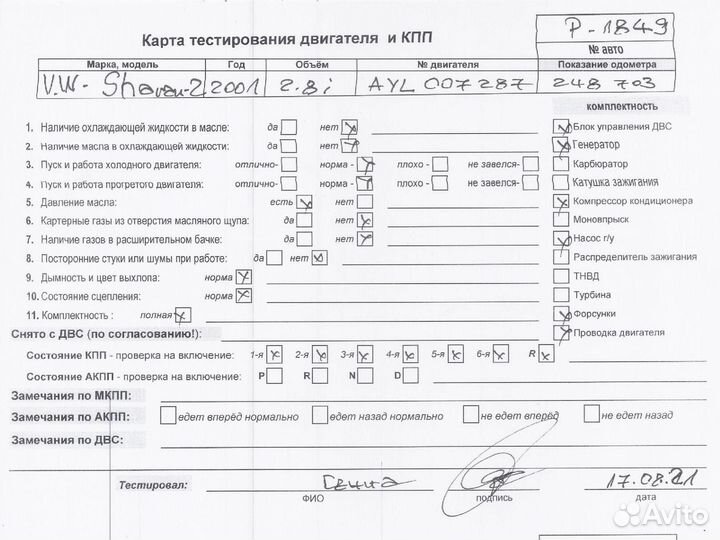 Р-1849
Карта тестирования двигателя и КПП
№ авто
Марка, модель Год Объём № двигателя Показание одометра
V.W- Sharan-2 2001 2.8i AYL 007287 248 703
комплектность
1. Наличие охлаждающей жидкости в масле: да нет
Блок управления ДВС
2. Наличие масла в охлаждающей жидкости: да нет
Генератор
3. Пуск и работа холодного двигателя: отлично- норма - плохо - не завелся-
Карбюратор
4. Пуск и работа прогретого двигателя: отлично- норма - плохо - не завелся-
Катушка зажигания
5. Давление масла: есть нет
Компрессор кондиционера
6. Картерные газы из отверстия масляного щупа: да нет
Моновпрыск
7. Наличие газов в расширительном бачке: да нет
Насос г/у
8. Посторонние стуки или шумы при работе: да нет
Распределитель зажигания
9. Дымность и цвет выхлопа: норма
ТНВД
10. Состояние сцепления: норма
Турбина
11. Комплектность : полная
Форсунки
Снято с ДВС (по согласованию!):
Проводка двигателя
Состояние КПП - проверка на включение: 1-я 2-я 3-я 4-я 5-я 6-я R
Состояние АКПП - проверка на включение: P R N D
Замечания по МКПП:
Замечания по АКПП: едет вперёд нормально едет назад нормально не едет вперёд не едет назад
Замечания по ДВС:
Тестировал: Гена 17.08.21
ФИО подпись дата
Avito